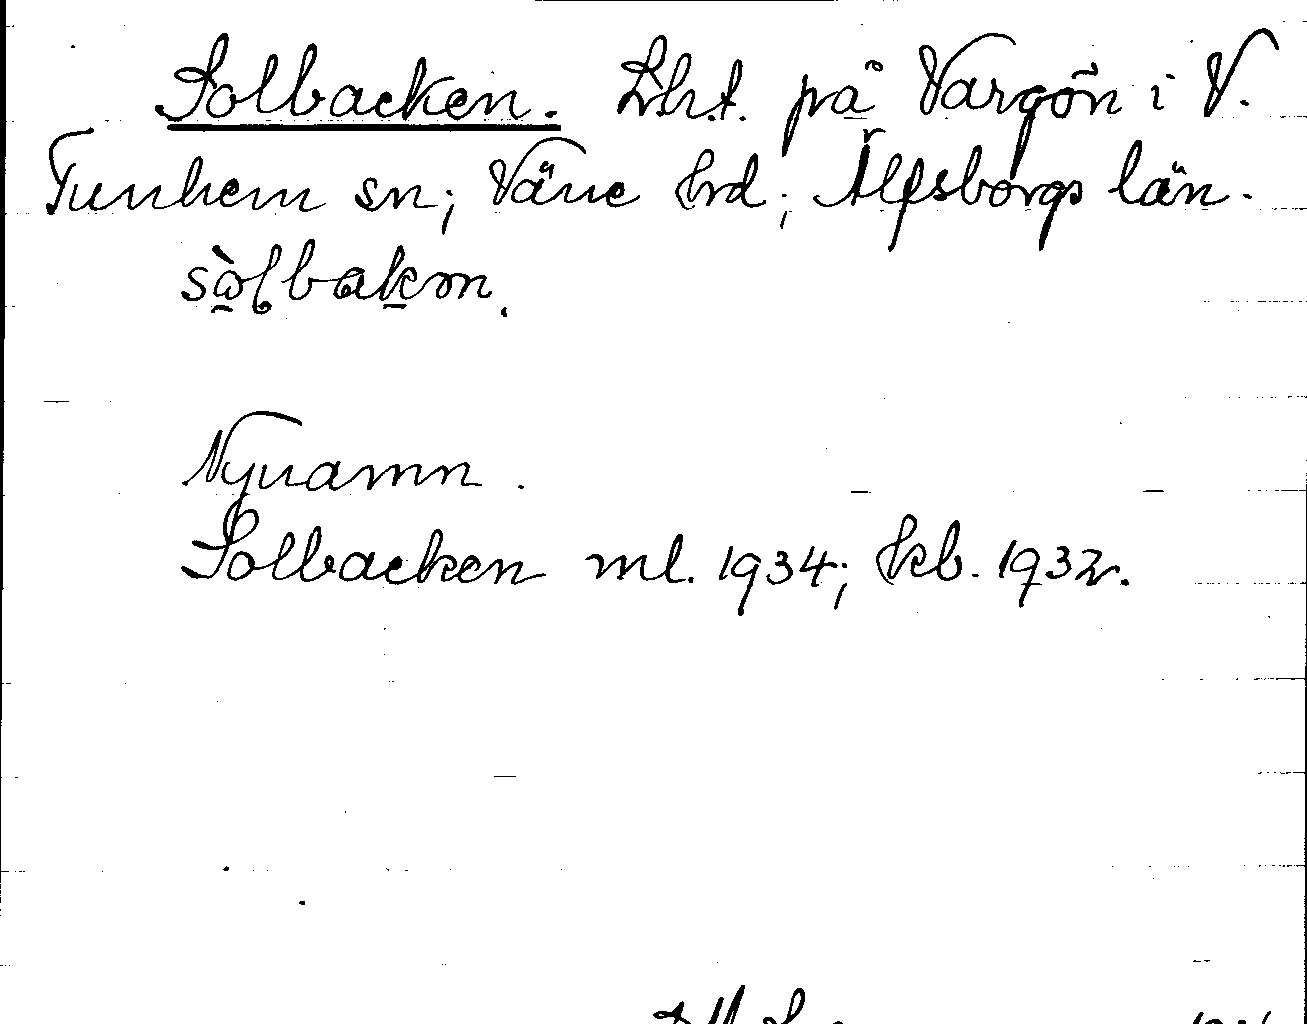 Solbacken. Lht. på Vargön i V.
Tunhem sn; Väne hd; Älfsborgs län.
sòlbakən.
Nynamn.
Solbacken ml. 1934; kb. 1932.